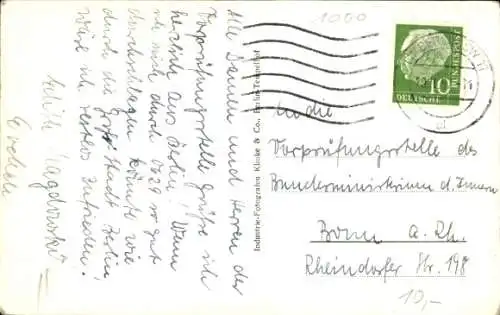 1000
Alle Damen und Herren der
Vorprüfungsstelle grüße ich
herzlich aus Berlin! Wenn
ich mich durch so gut
durchschlagen könnte wie
durch die Großstadt Berlin,
wäre ich restlos zufrieden.
Edith Magdowski
Industrie-Fotografen Klinke & Co., Berlin-Tempelhof
DEUTSCHE BUNDESPOST
10
An die
Vorprüfungsstelle des
Bundesministeriums d. Innern
Bonn a. Rh.
Rheindorfer Str. 198
10,-